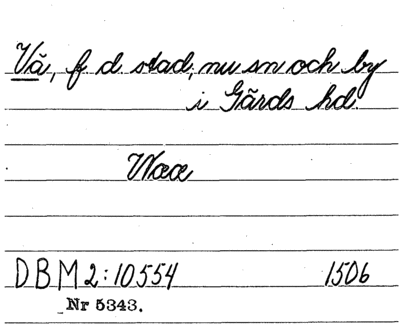 Vä, f. d. stad, nu sn och by
i Gärds hd.
Wææ
DBM 2:10554 1506
Nr 5343.